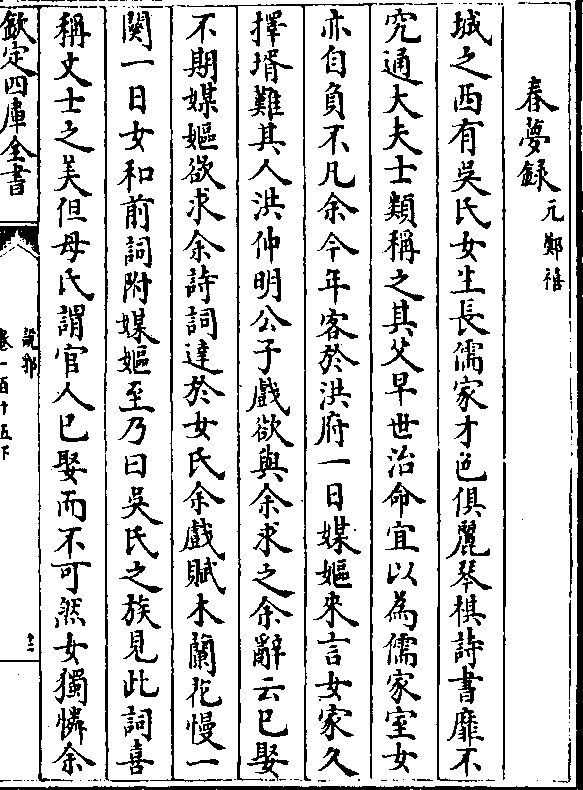 春夢録 元 鄭禧
城之西有吳氏女生長儒家才色俱麗琴棋詩書靡不
究通大夫士類稱之其父早世治命宜以為儒家室女
亦自負不凡余今年客於洪府一日媒嫗來言女家久
擇壻難其人洪仲明公子戲欲與余求之余辭云已娶
不期媒嫗欲求余詩詞達於女氏余戲賦木蘭花慢一
闋一日女和前詞附媒嫗至乃曰吳氏之族見此詞喜
稱文士之美但母氏謂官人已娶而不可然女獨憐余
欽定四庫全書
說郛
卷一百十五下